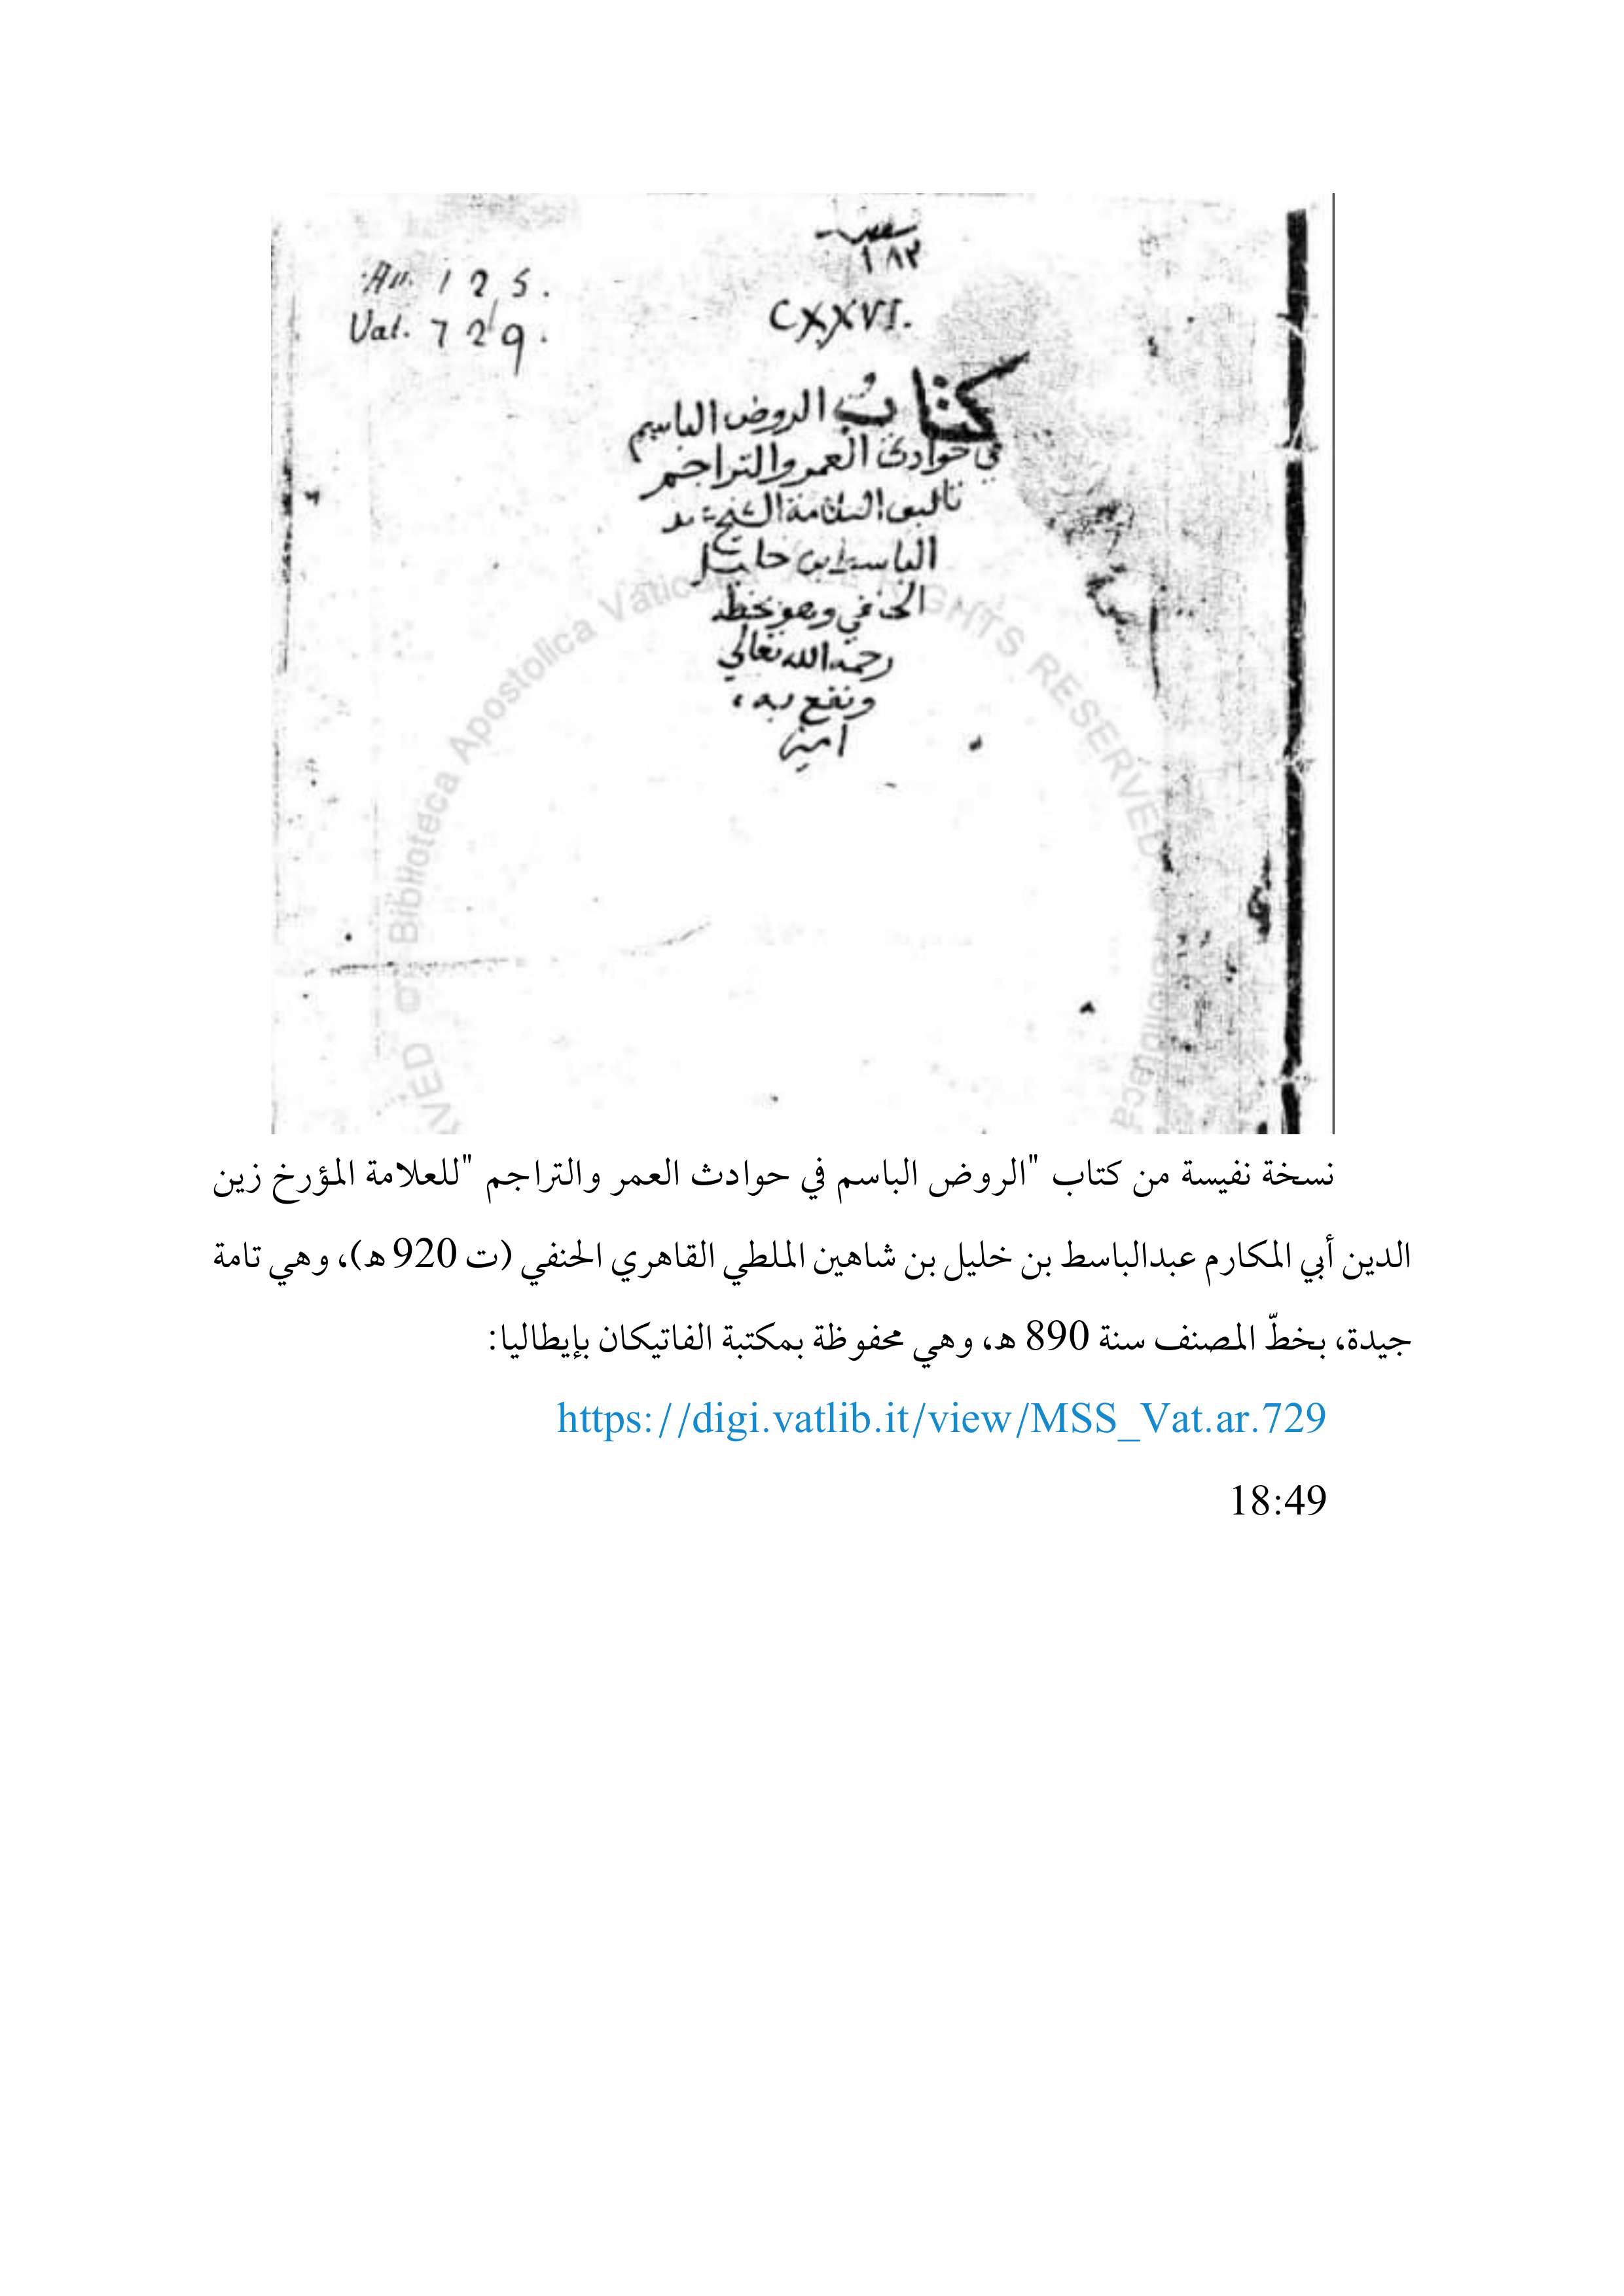 ١٨٢
125.
Vat. 729.
CXXVI.
كتاب الروض الباسم
في حوادث العمر والتراجم
تاليف العلامة الشيخ عبد
الباسط بن خليل
الحنفي وهو بخطه
رحمه الله تعالي
ونفع به
امين
Biblioteca Apostolica Vaticana
RIGHTS RESERVED
نسخة نفيسة من كتاب "الروض الباسم في حوادث العمر والتراجم "للعلامة المؤرخ زين
الدين أبي المكارم عبدالباسط بن خليل بن شاهين الملطي القاهري الحنفي (ت 920 ه)، وهي تامة
جيدة، بخطّ المصنف سنة 890 ه، وهي محفوظة بمكتبة الفاتيكان بإيطاليا:
https://digi.vatlib.it/view/MSS_Vat.ar.729
18:49